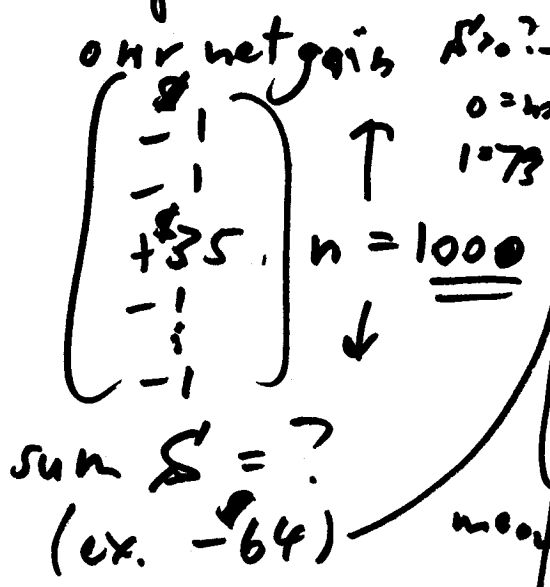 our net gain
$
-1
-1
+$35
-1
⋮
-1
n = 1000
sum S = ?
(ex. -$64)
S>0?
0 =
1=